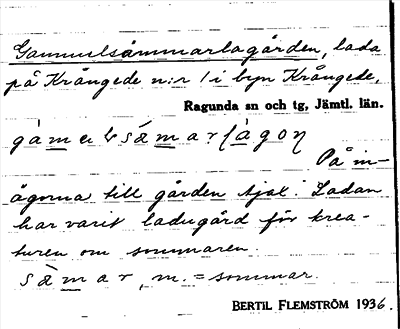 Gammelsåmmarlagården, lada
på Krångede n:r 1 i byn Krångede,
Ragunda sn och tg, Jämtl. län.
På in-
ägorna till gården Ajal. Ladan
har varit ladugård för krea-
turen om sommaren.
sàmar, m. = sommar.
BERTIL FLEMSTRÖM 1936.